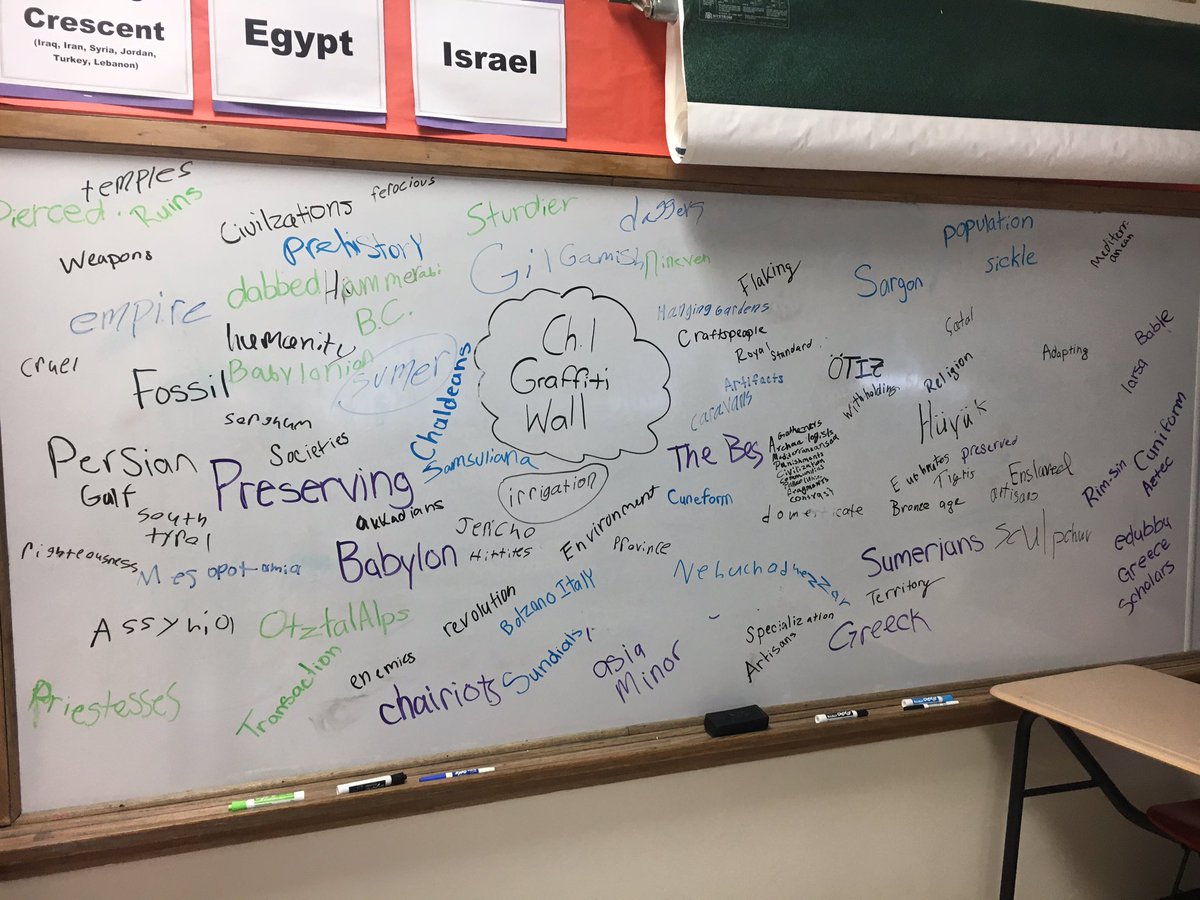 Crescent
(Iraq, Iran, Syria, Jordan,
Turkey, Lebanon)
Egypt
Israel
temples
Pierced
Ruins
Civilzations
ferocious
Sturdier
daggers
population
Mediterr
anean
Weapons
prehistory
GilGamish
Nineven
Flaking
sickle
Sargon
empire
dabbed
Hammerabi
B.C.
Hanging Gardens
Craftspeople
Royal Standard
Catal
Bable
Cruel
humanity
Babylonian
Sumer
Chaldeans
Ch.1
Graffiti
Wall
Artifacts
caravans
ÖTIZ
Withholding
Religion
Adapting
larsa
Fossil
sorghum
Societies
Hüyük
Persian
Gulf
Preserving
Samsuliana
irrigation
The Bes
Punishments
Civilization
fragments
contrast
preserved
Tigtis
Enslaved
artisans
Rim-sin
Cuniform
Aetec
south
akkadians
Jericho
Environment
Cuneform
domesticate
Bronze age
righteousness
Mesopotamia
Babylon
Hittites
Province
Sumerians
edubba
Greece
Scholars
Assyria
OtztalAlps
revolution
Bolzano Italy
Territory
Specialization
Artisans
Greeck
Priestesses
Transaction
enemies
chairiots
Sundials
asia
Minor